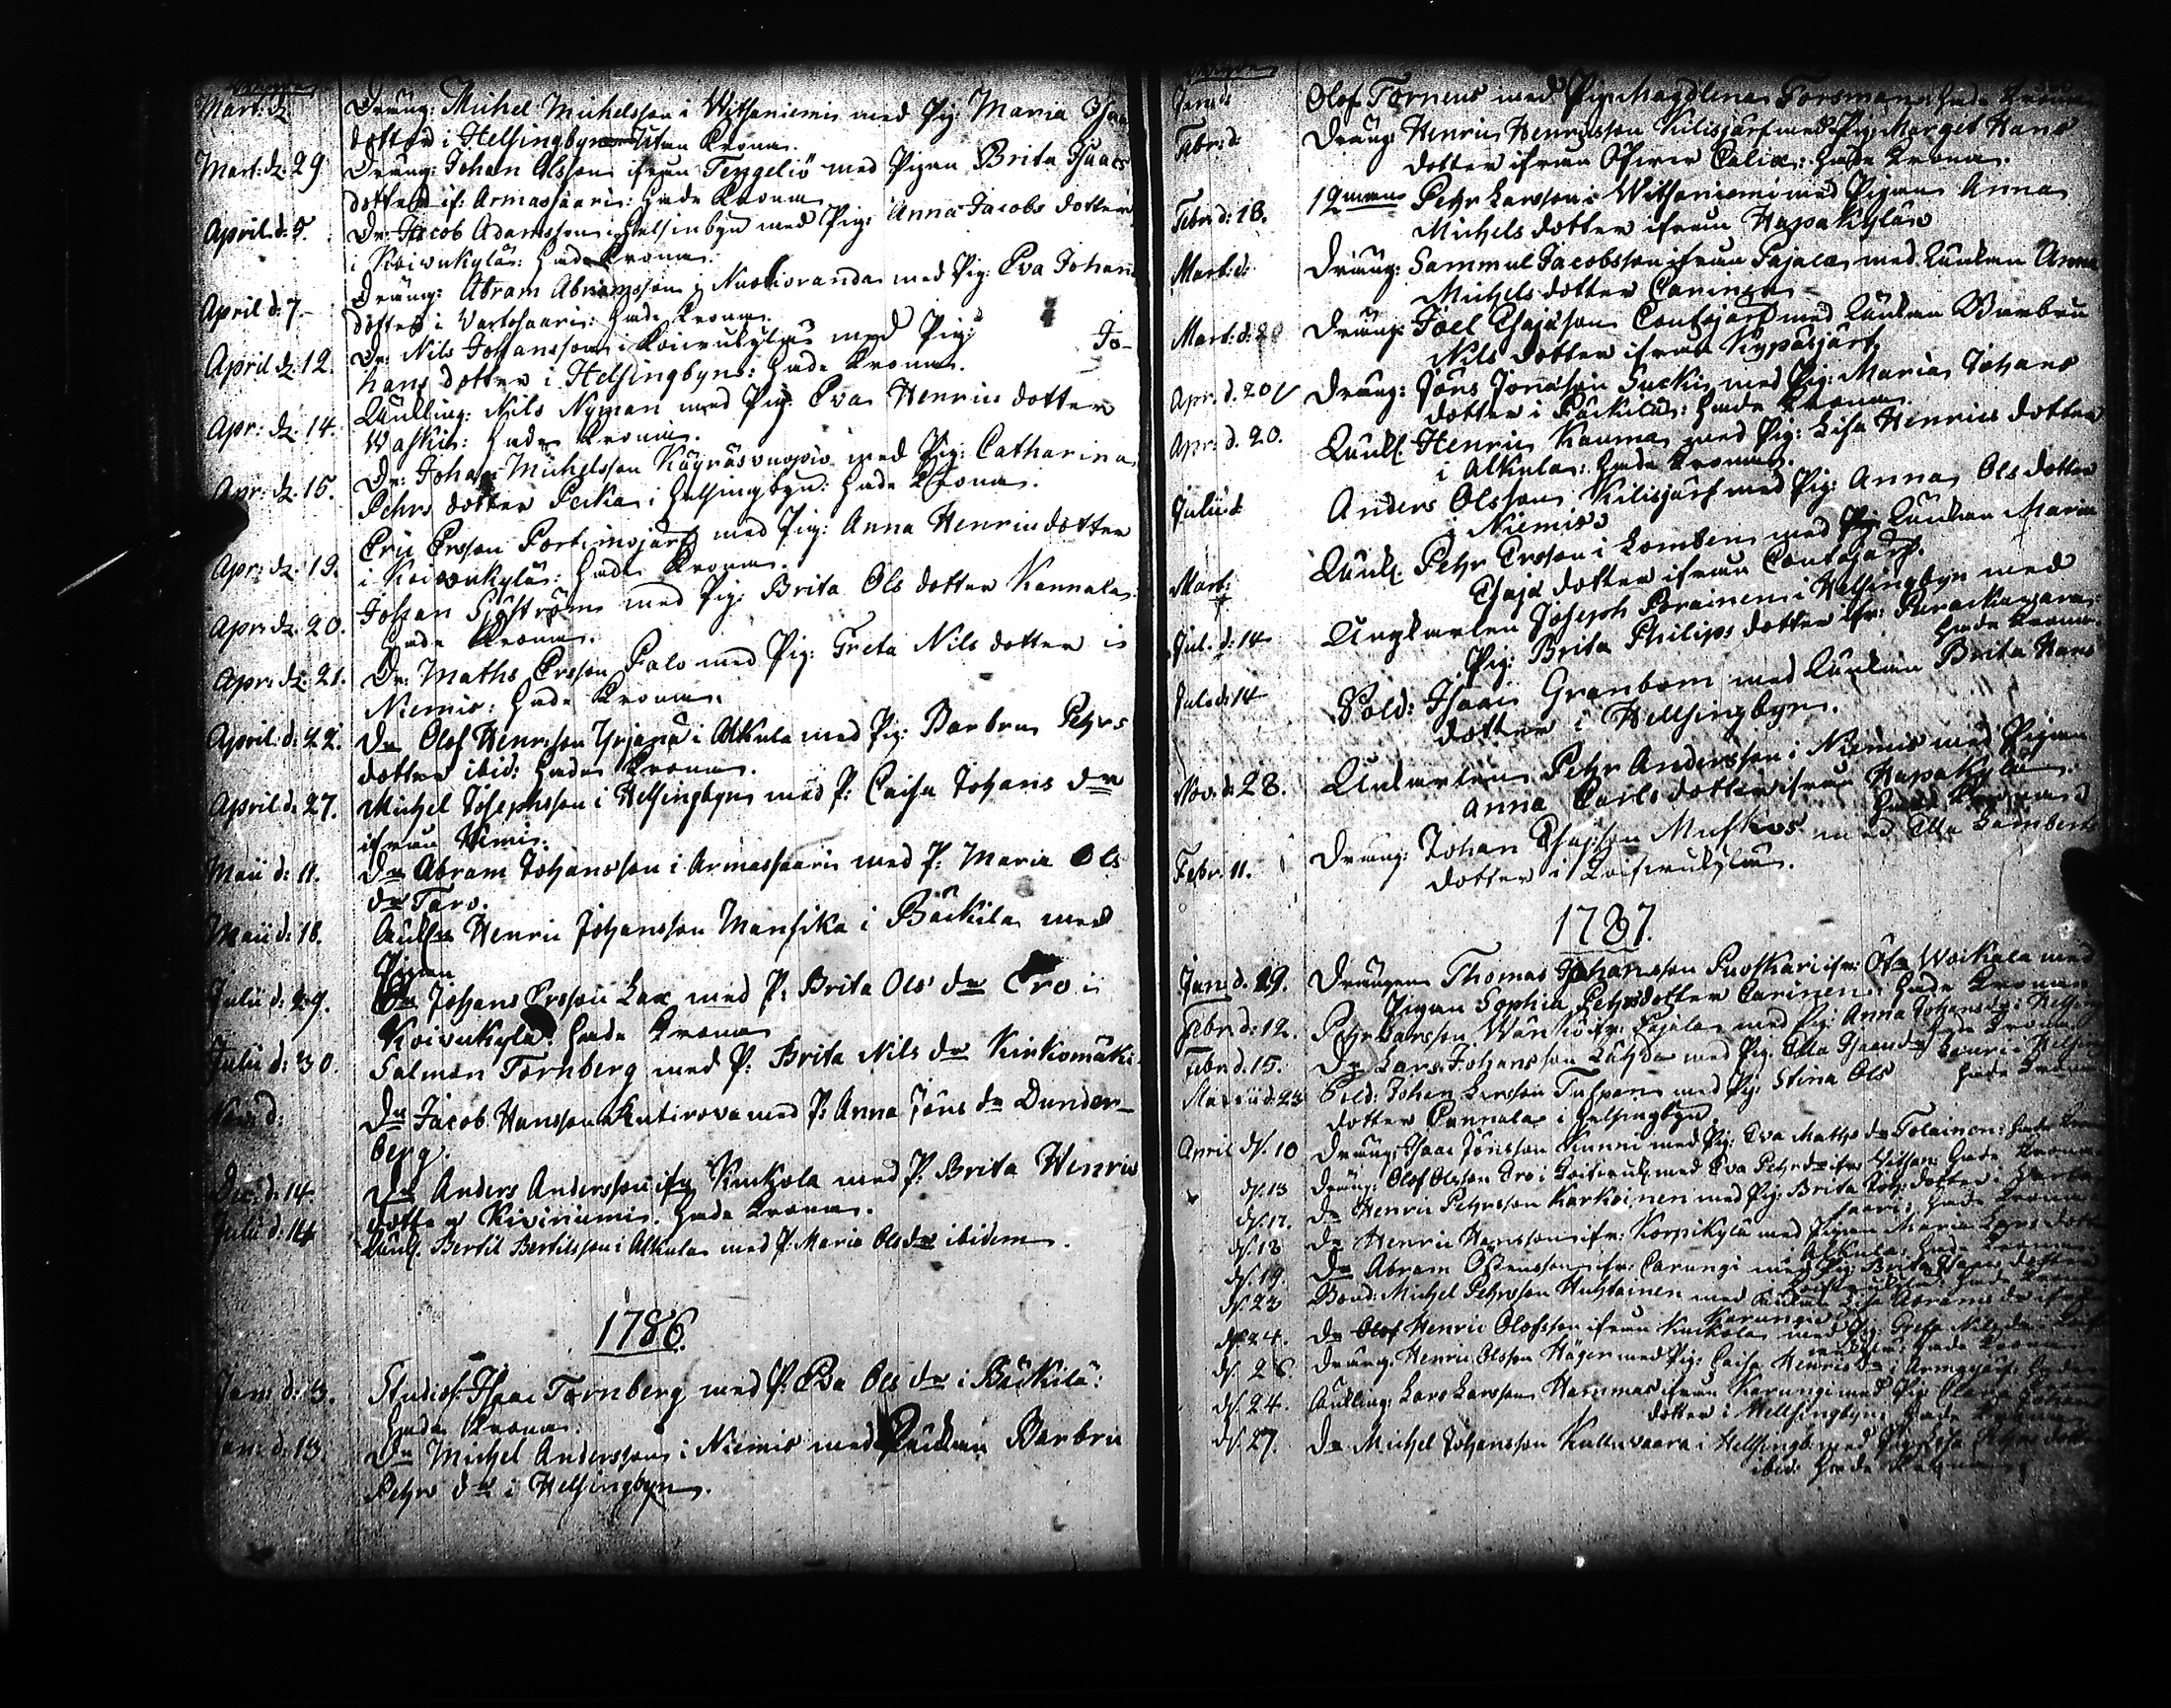 Mart: d:
Dräng: Michel Michelsson i Witsaniemi med Pig: Maria Isaacs
dotter i Helsingbyn utan Krona.
Mart: d: 29. Dräng: Johan Olsson ifrån Tengeliö med Pigan Brita Isaacs
dotter if: Armassaari: hade Krona
April d: 5. Dr: Jacob Adamsson i Helsinbyn med Pig: Anna Jacobs dotter
i Koivukylä: hade Krona.
April d: 7. Dräng: Abram Abramsson i Nuotioranda med Pig: Eva Johans
dotter i Wartosaari: hade Krona.
April d: 12. Dr: Nils Johansson i Koivukylä med Pig: Jo-
hans dotter i Helsingbyn: hade Krona.
Apr: d: 14. Änkling: Nils Nyman med Pig: Eva Henrics dotter
Waski: hade Krona.
Apr: d: 15. Dr: Johan Michelsson Käyräsvuopio med Pig: Catharina
Pehrs dotter Pecka i Helsingbyn: hade Krona.
Apr: d: 19. Eric Ersson Portimojärf med Pig: Anna Henrics dotter
i Koivukylä: hade Krona.
Apr: d: 20. Johan Sjöström med Pig: Brita Ols dotter Kannala:
hade Krona.
Apr: d: 21. Dr: Maths Ersson Palo med Pig: Greta Nils dotter i
Niemis: hade Krona.
April: d: 22. Dr Olof Henrsson Yrjänä i Alkula med Pig: Barbru Pehrs
dotter ibid: hade Krona.
April d: 27. Michel Josephsson i Helsingbyn med P: Caisa Johans dr
ifrån Kemi.
Maii d: 11. Dr Abram Johansson i Armassaari med P: Maria Ols
dr Taro.
Maii d: 18. Änkl Henric Johansson Mansika i Bäckilä med
Pigan
Julii d: 29. Johans Ersson Lax med P: Brita Ols dr Ero i
Koivukylä: hade Krona
Julii d: 30. Salmon Tornberg med P: Brita Nils dr Kirkomäki.
Nov: d: Dr Jacob Hansson Rautirova med P: Anna Jöns dr Dunder-
berg.
Dec: d: 14. Dr Anders Andersson ifr Kuckola med P: Brita Henrics
dotter Kiviniemi. hade Krona.
Julii d: 14 Änkl. Bertil Bertilsson i Alkula med P: Maria Ols dr ibidem.
1786.
Jan: d: 3. Studios: Isaac Tornberg med P: Eva Ols dr i Bäckilä:
hade Krona.
Jan: d: 13. Dr Michel Andersson i Niemis med Änkan Barbru
Pehrs dr i Helsingbyn.
Jan: d: Olof Torneus med Pig: Magdlena Forsman: hade Krona
Febr: d: Dräng: Henric Henricsson Kilisjärf med Pig: Marget Hans
dotter ifrån Öfver Calix: hade Krona.
Febr d: 18. Pehr Larsson i Witsaniemi med Pigan Anna
Michels dotter ifrån Hapakylä
Mart: d: Dräng: Sammul Jacobsson ifrån Pajala med Änkan Anna
Michels dotter Carinen
Mart: d: 20 Dräng: Joel Esajsson Contojärf med Änkan Barbru
Nils dotter ifrån Kypäsjärf
Apr: d. 20 Dräng: Jöns Jonasson Sucki med Pig: Maria Johans
dotter i Bäckilä: hade Krona.
Apr: d. 20. Änkl. Henric Kauma med Pig: Lisa Henrics dotter
i Alkula: hade Krona.
Julii d: Anders Olsson Kilisjärf med Pig: Anna Ols dotter
i Niemis
Mart: Änkl. Pehr Ersson i Lomben med Änkan Maria
Esajæ dotter ifrån Contojärf.
Jul. d: 14 Ungkarlen Joseph Porainen i Helsingbyn med
Pig: Brita Philips dotter ifr: Purackavara:
hade Krona.
Jul. d: 14 Sold: Isaac Granbom med Änkan Brita Hans
dotter i Hellsingbyn.
Nov. d: 28. Änkarlen Pehr Andersson i Niemis med Pigan
Anna Carls dotter ifrån Hapakylä
hade Krona
Febr. 11. Dräng: Johan Esajsson Muskos med Ella Lamberts
dotter i Koifvukylä.
1787.
Jan: d. 29. Drängen Thomas Johansson Puoskari ifr: Öfr Woikala med
Pigan Sophia Pehrsdotter Carinen: hade Krona
Febr: d: 12. Pehr Larsson Wänkö ifr: Pajala med Pig: Anna Johans dr i Helsing
hade Krona
Febr d. 15. Dr Lars Johansson med Pig: Ella Isaacs dr
hade Krona
Martii d: 23 Sold: Johan Larsson med Pig: Stina Ols
dotter Kannala i Helsingbyn
April d. 10 Dräng: Isaac Jönsson Kunni med Pig: Eva Maths dr Tolainen: hade Krona
d. 13 Dräng: Olof Olsson Ero i Koifvuk: med Eva Pehrs dr ifr: hade Krona
d. 17. Dr Henric Pehrsson Karkoinen med Pig: Brita Joh: dotter i
saari: hade Krona
d. 18 Dr Henric Hansson ifr: Korpikylä med Pigan Maria Lars dotter
Alkula: hade Krona
d. 19. Dr Abram Össensson ifr: Carungi med Pig: Brita Hans dotter
Koifvukylä: hade Krona
d. 23 Bond: Michel Pehrsson Huhtainen med Änkan Lisa Abrams dr ifrån
Karungi
d. 24. Dr Olof Henric Olofsson ifrån Kuckola med Pig: Greta Nils dr
hade Krona
d. 26. Dräng: Henric Olsson Häger med Pig: Caisa Henrics dr i Armasjärf:
d. 24. Änkling: Lars Larsson Hannmas ifrån Karungi med Pig: Clara Johans
dotter i Hellsingbyn: hade Krona
d. 27. Dr Michel Johansson Kulluvaara i Hellsingb: med Pig: Lisa Pehrs dotter
ibid: hade Krona